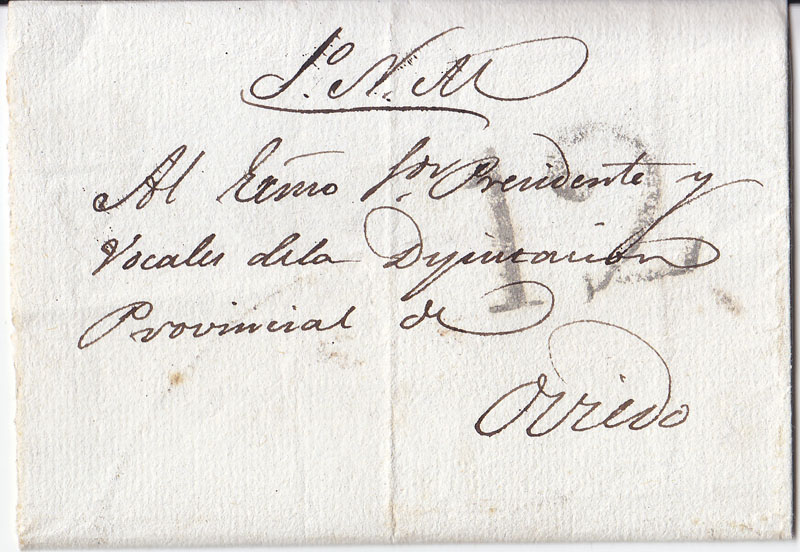 S.º N. M
Al Exmo Sor. Presidente y
Vocales dela Diputacion
Provincial de
Oviedo
12